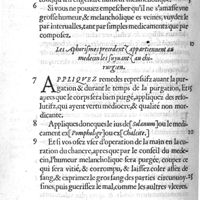 6 Si vous ne pouuez empescher qu'il ne s'amasse vn
grosse humeur & melancholique es veines, vuydez le
par interualles, tant par simples medicamens que par
composez.
Les Aphorismes precedentz appartiennent au
medecin: les suyuant au chi-
rurgien.
7 APPLIQVEZ remedes repressifz auant la pur-
gation & durant le temps de la purgation, Et
apres que le corps sera bien purgé, appliquez des reso-
lutifz, qui ayent vertu mediocre, & non qualité
mordicante.
8 Appliquez donc que le ius de Solanum, ou le medi-
cament ex Pompholyge, ou ex Chalcite.
9 Et si vous osez vser d'operation de la main en la cu-
ration du chancre, apres que par le conseil du méde-
cin, l'humeur melancholique sera purgé, coupez ce
qui sera vitié, & corrompu, & laissez coler aller le
sang, & exprimez le gros sang des parties circonuoy-
sines, puis guerissez le mal, comme les autres vlceres.